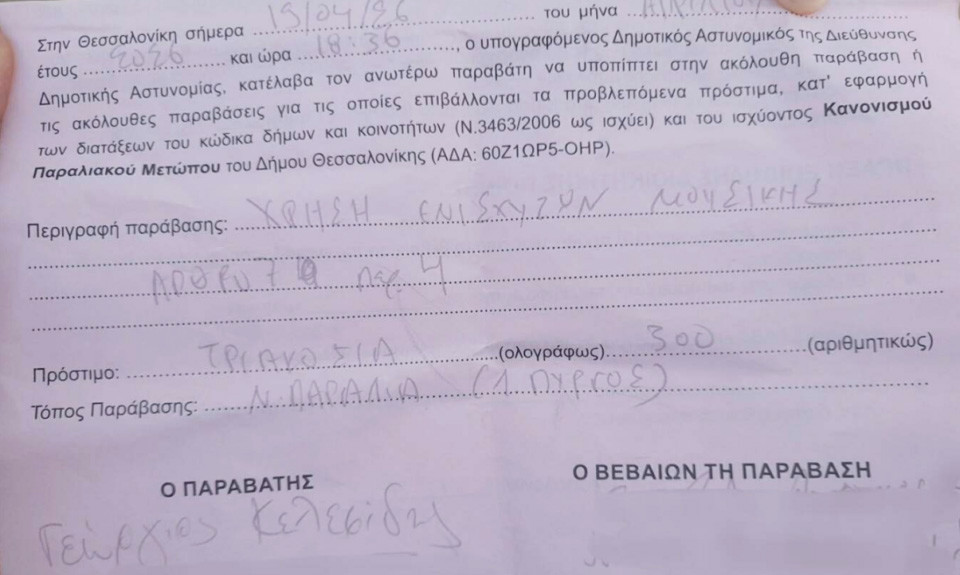 Στην Θεσσαλονίκη σήμερα ........ του μήνα ΑΠΡΙΛΙΟΥ
έτους 2026 και ώρα 18:36, ο υπογραφόμενος Δημοτικός Αστυνομικός της Διεύθυνσης
Δημοτικής Αστυνομίας, κατέλαβα τον ανωτέρω παραβάτη να υποπίπτει στην ακόλουθη παράβαση ή
τις ακόλουθες παραβάσεις για τις οποίες επιβάλλονται τα προβλεπόμενα πρόστιμα, κατ' εφαρμογή
των διατάξεων του κώδικα δήμων και κοινοτήτων (Ν.3463/2006 ως ισχύει) και του ισχύοντος Κανονισμού
Παραλιακού Μετώπου του Δήμου Θεσσαλονίκης (ΑΔΑ: 60Ζ1ΩΡ5-ΟΗΡ).
Περιγραφή παράβασης: ΧΡΗΣΗ ΕΝΙΣΧΥΤΩΝ ΜΟΥΣΙΚΗΣ
ΑΡΘΡΟ 7 παρ. 4
Πρόστιμο: ΤΡΙΑΚΟΣΙΑ (ολογράφως) 300 (αριθμητικώς)
Τόπος Παράβασης: Ν. ΠΑΡΑΛΙΑ (Λ. ΠΥΡΓΟΣ)
Ο ΠΑΡΑΒΑΤΗΣ Ο ΒΕΒΑΙΩΝ ΤΗ ΠΑΡΑΒΑΣΗ
Γεώργιος Κελεσίδης